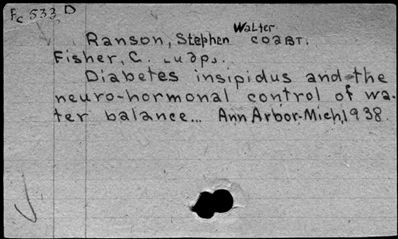 Fc 533 D
Walter
Ranson, Stephen coaвт.
Fisher, C. и др.
Diabetes insipidus and the
neuro-hormonal control of wa-
ter balance... Ann Arbor-Mich, 1938